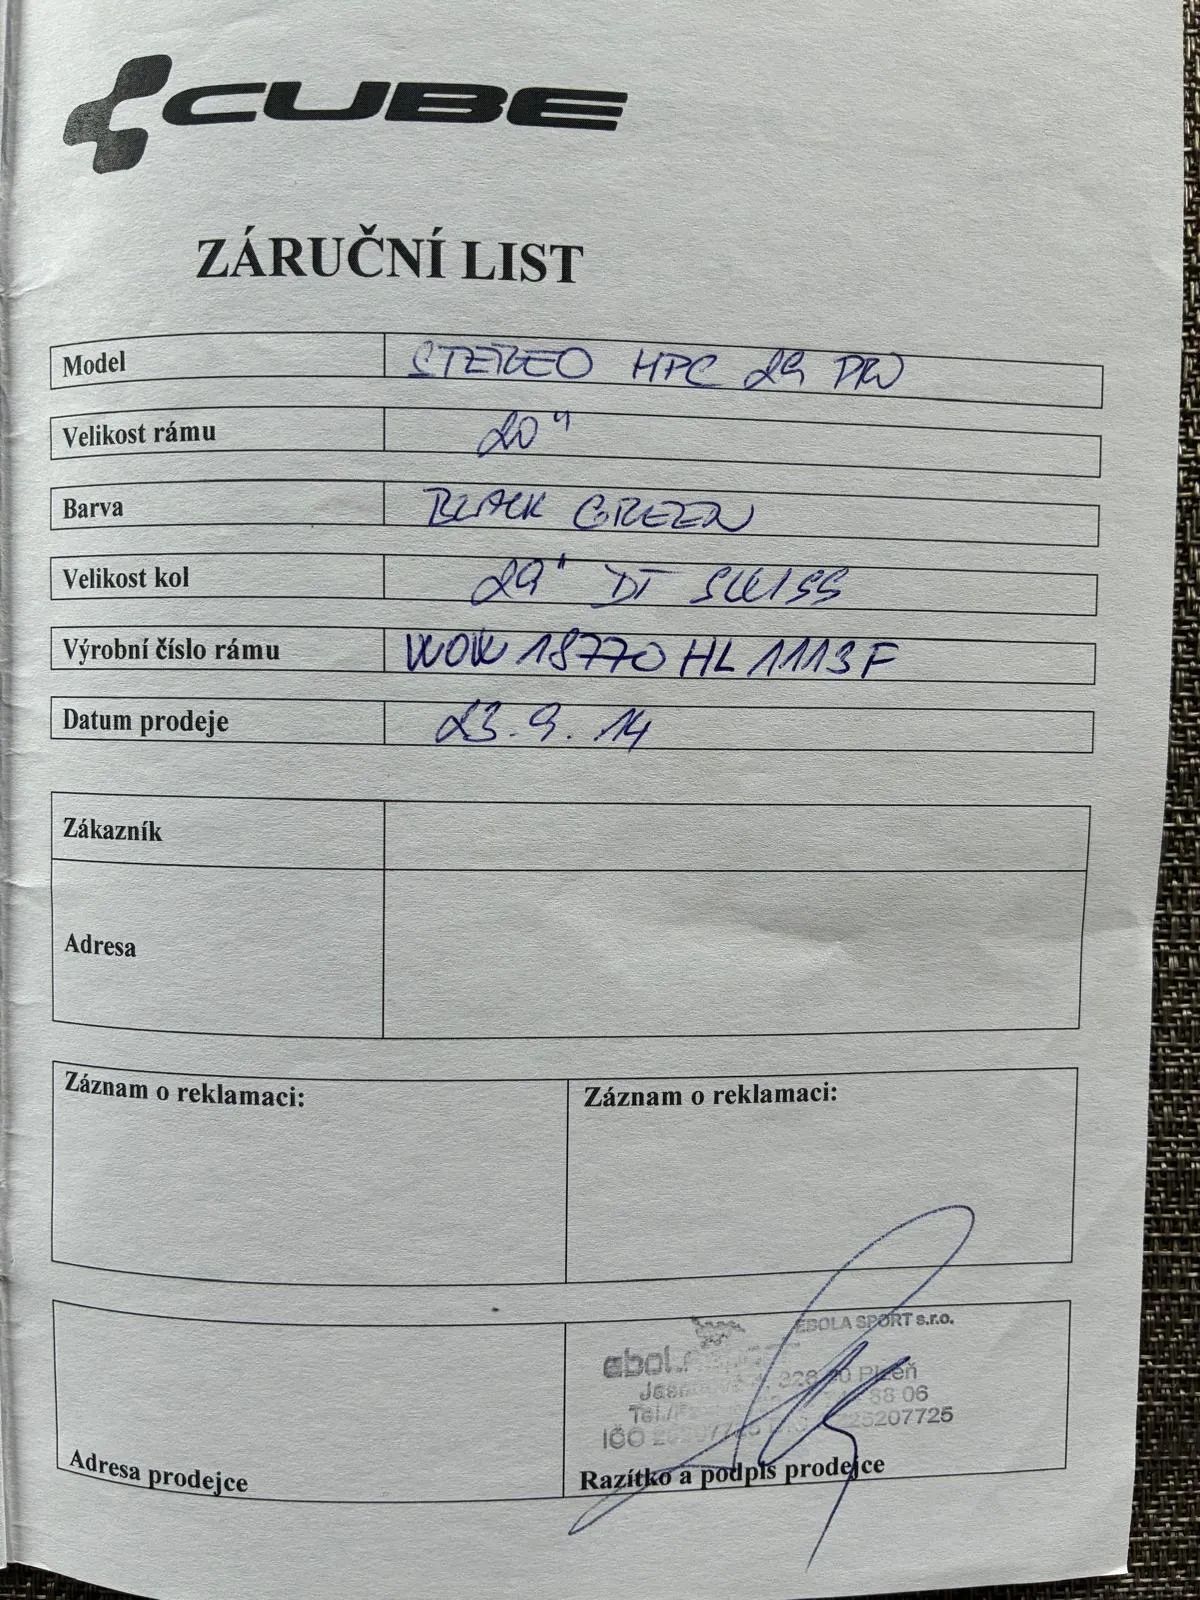 CUBE
ZÁRUČNÍ LIST
Model STEREO HPC 29
Velikost rámu 20"
Barva BLACK GREEN
Velikost kol 29" DT SWISS
Výrobní číslo rámu WOW 18770 HL 1113F
Datum prodeje 23. 9. 14
Zákazník
Adresa
Záznam o reklamaci: Záznam o reklamaci:
EBOLA SPORT s.r.o.
Plzeň
Tel./ 88 06
IČO 225207725
Adresa prodejce Razítko a podpis prodejce